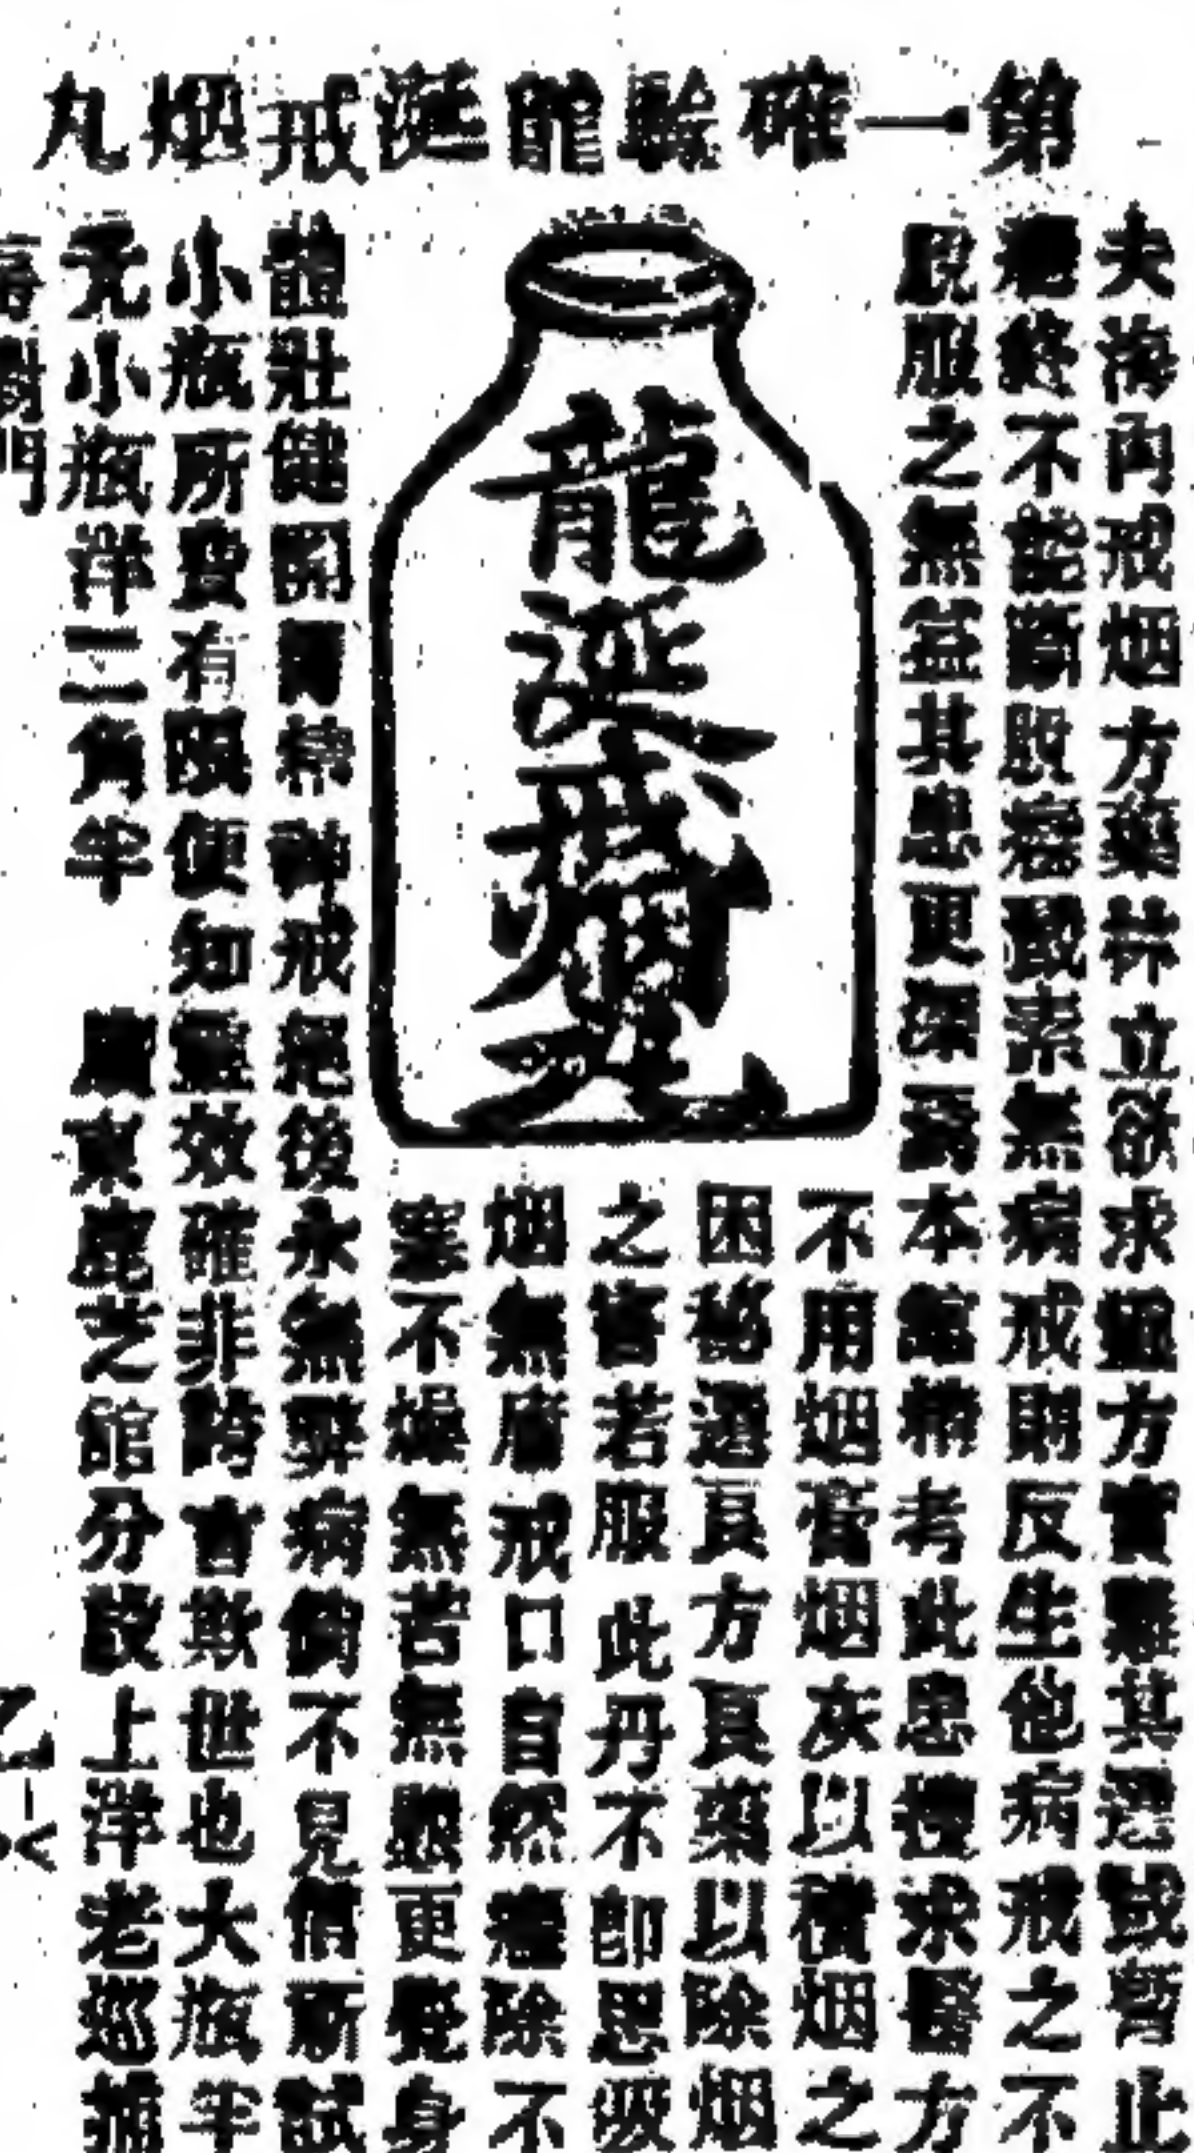 第一確驗龍涎戒烟丸
夫海內戒烟方藥林立欲求靈方實難其選或暫止
癮終不能斷毀癮戤素無病戒則反生他病戒之不
脫服之無益其患更深焉本館精考此患搜求醫方
不用烟膏烟灰以積烟之
困秘選良方良藥以除烟
之皆若服此丹不卽思吸
烟無庸戒口自然癮除不
塞不燥無苦無艱更覺身
龍涎戒烟
體壯健開胃精神戒絕後永無弊病倘不見信所試
小瓶所費有限便知靈效確非誇言欺世也大瓶半
元小瓶洋二角半　廣東鹿芝館分設上洋老巡捕
門